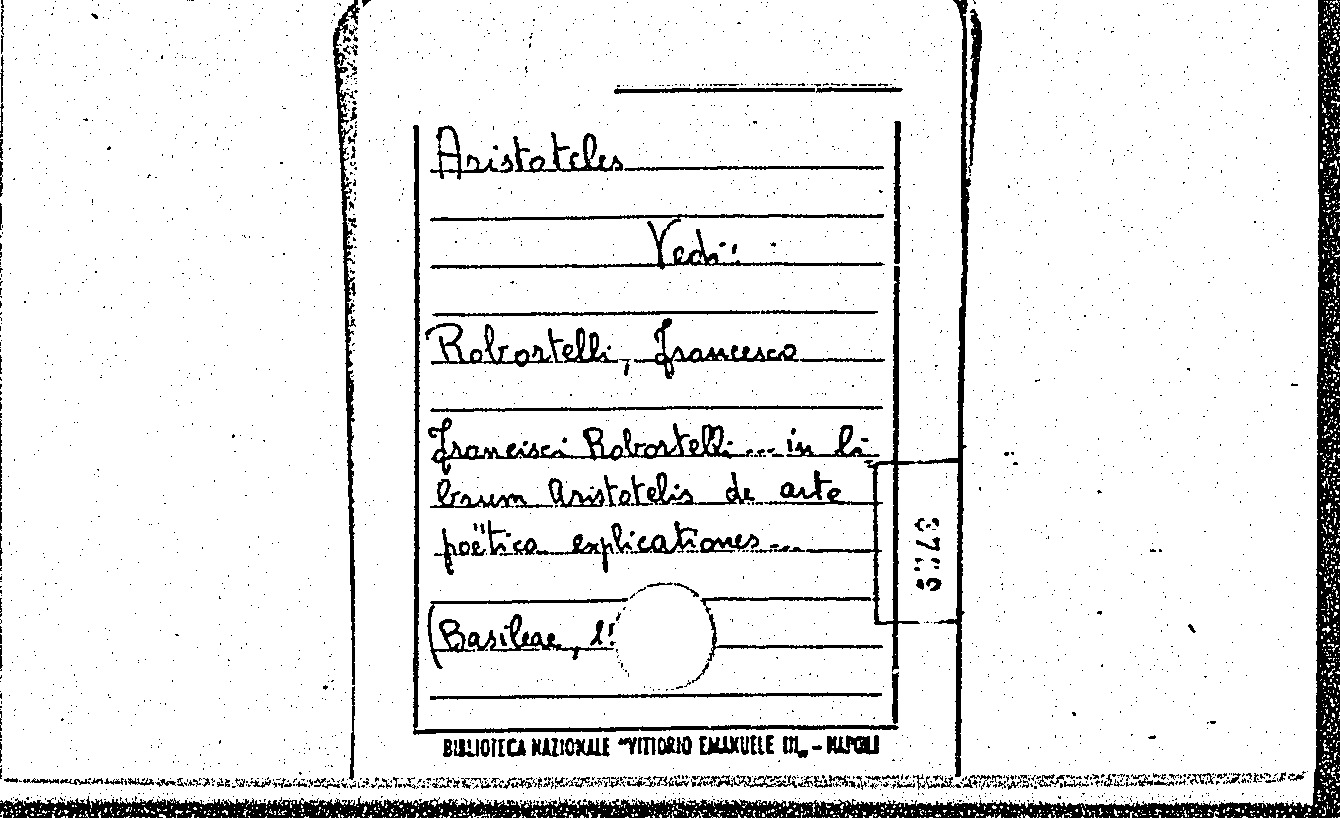 Aristoteles
Vedi:
Robortelli, Francesco
Francisci Robortelli ... in li-
brum Aristotelis de arte
poëtica explicationes ...
(Basileae,
BIBLIOTECA NAZIONALE "VITTORIO EMANUELE III" - NAPOLI